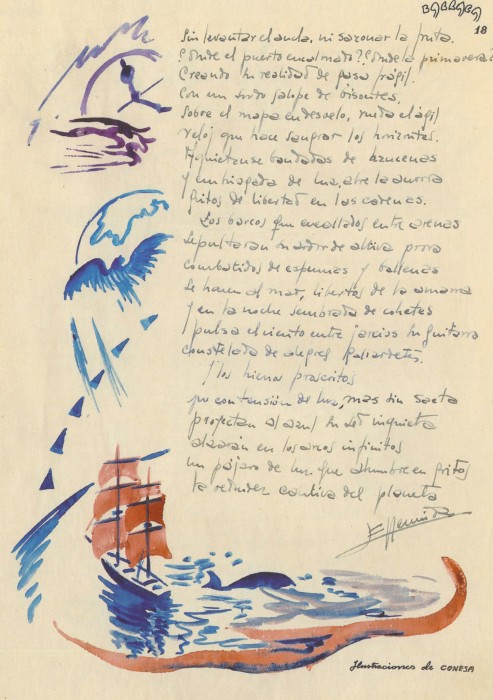 18
Sin levantar el ancla, ni sazonar la fruta.
¿Dónde el puerto encalmado? ¿Dónde la primavera?
Creando su realidad de gasa frágil.
Con un sordo galope de bisontes,
Sobre el mapa en desvelo, rueda el ágil
reloj que hace sangrar los horizontes.
Aquiétense bandadas de azucenas
y embriagada de luz, abre la aurora
gritos de libertad en las cadenas.
Los barcos que encallados entre arenas
sepultaran su ardor de altiva prora
combatidos de espumas y ballenas
se hacen al mar, libertos de la amarra
y en la noche sembrada de cohetes
pulsa el viento entre jarcias su guitarra
constelada de alegres gallardetes.
Y los himnos proscritos
por contensión de luz, mas sin saeta
proyectan al azul su sed inquieta
alzarán en los arcos infinitos
un pájaro de luz que alumbre en gritos
la redondez cautiva del planeta
Ilustraciones de CONESA